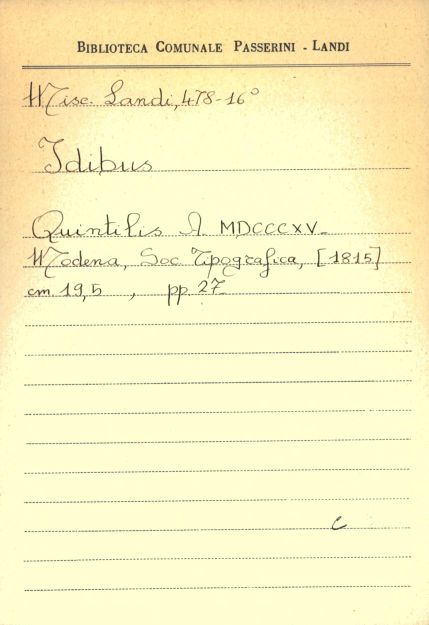 BIBLIOTECA COMUNALE PASSERINI - LANDI
Misc. Landi, 478-16°
Idibus
Quintilis A. MDCCCXV.
Modena, Soc. Tipografica, [1815]
cm. 19,5 , pp. 27
c